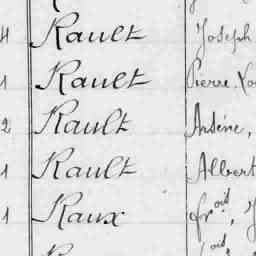 4 Rault Joseph
1 Rault Pierre
2 Rault Arsène,
1 Rault Albert
1 Raux frois,